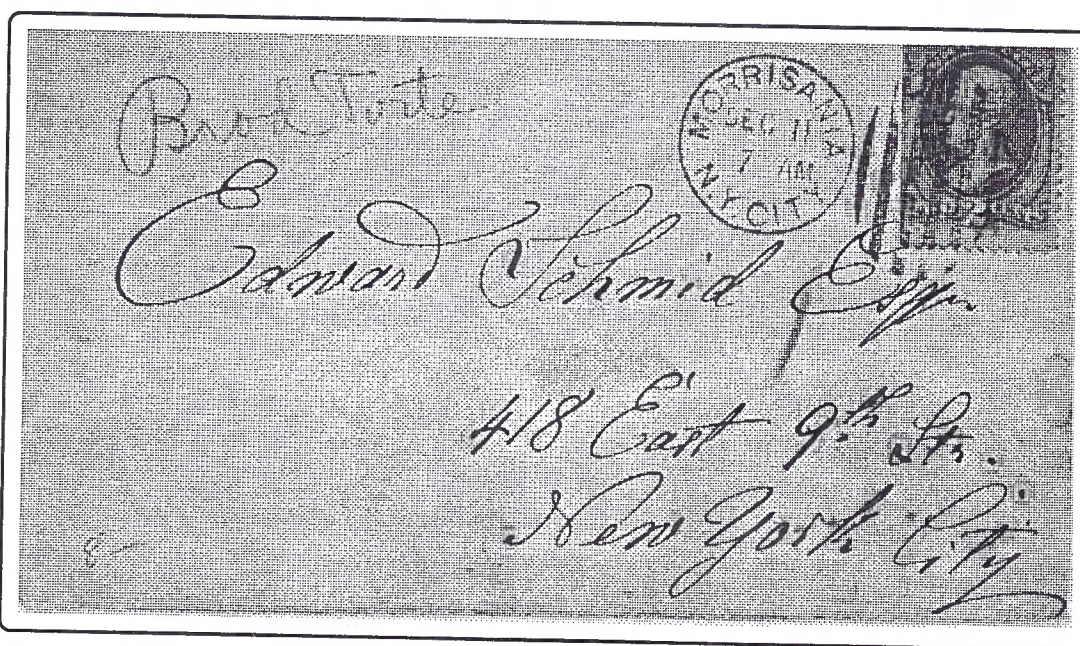 Brod Torte
MORRISANIA
DEC 11
7 AM
N.Y. CITY
Edward Schmid Esqr
418 East 9th Str.
New York City